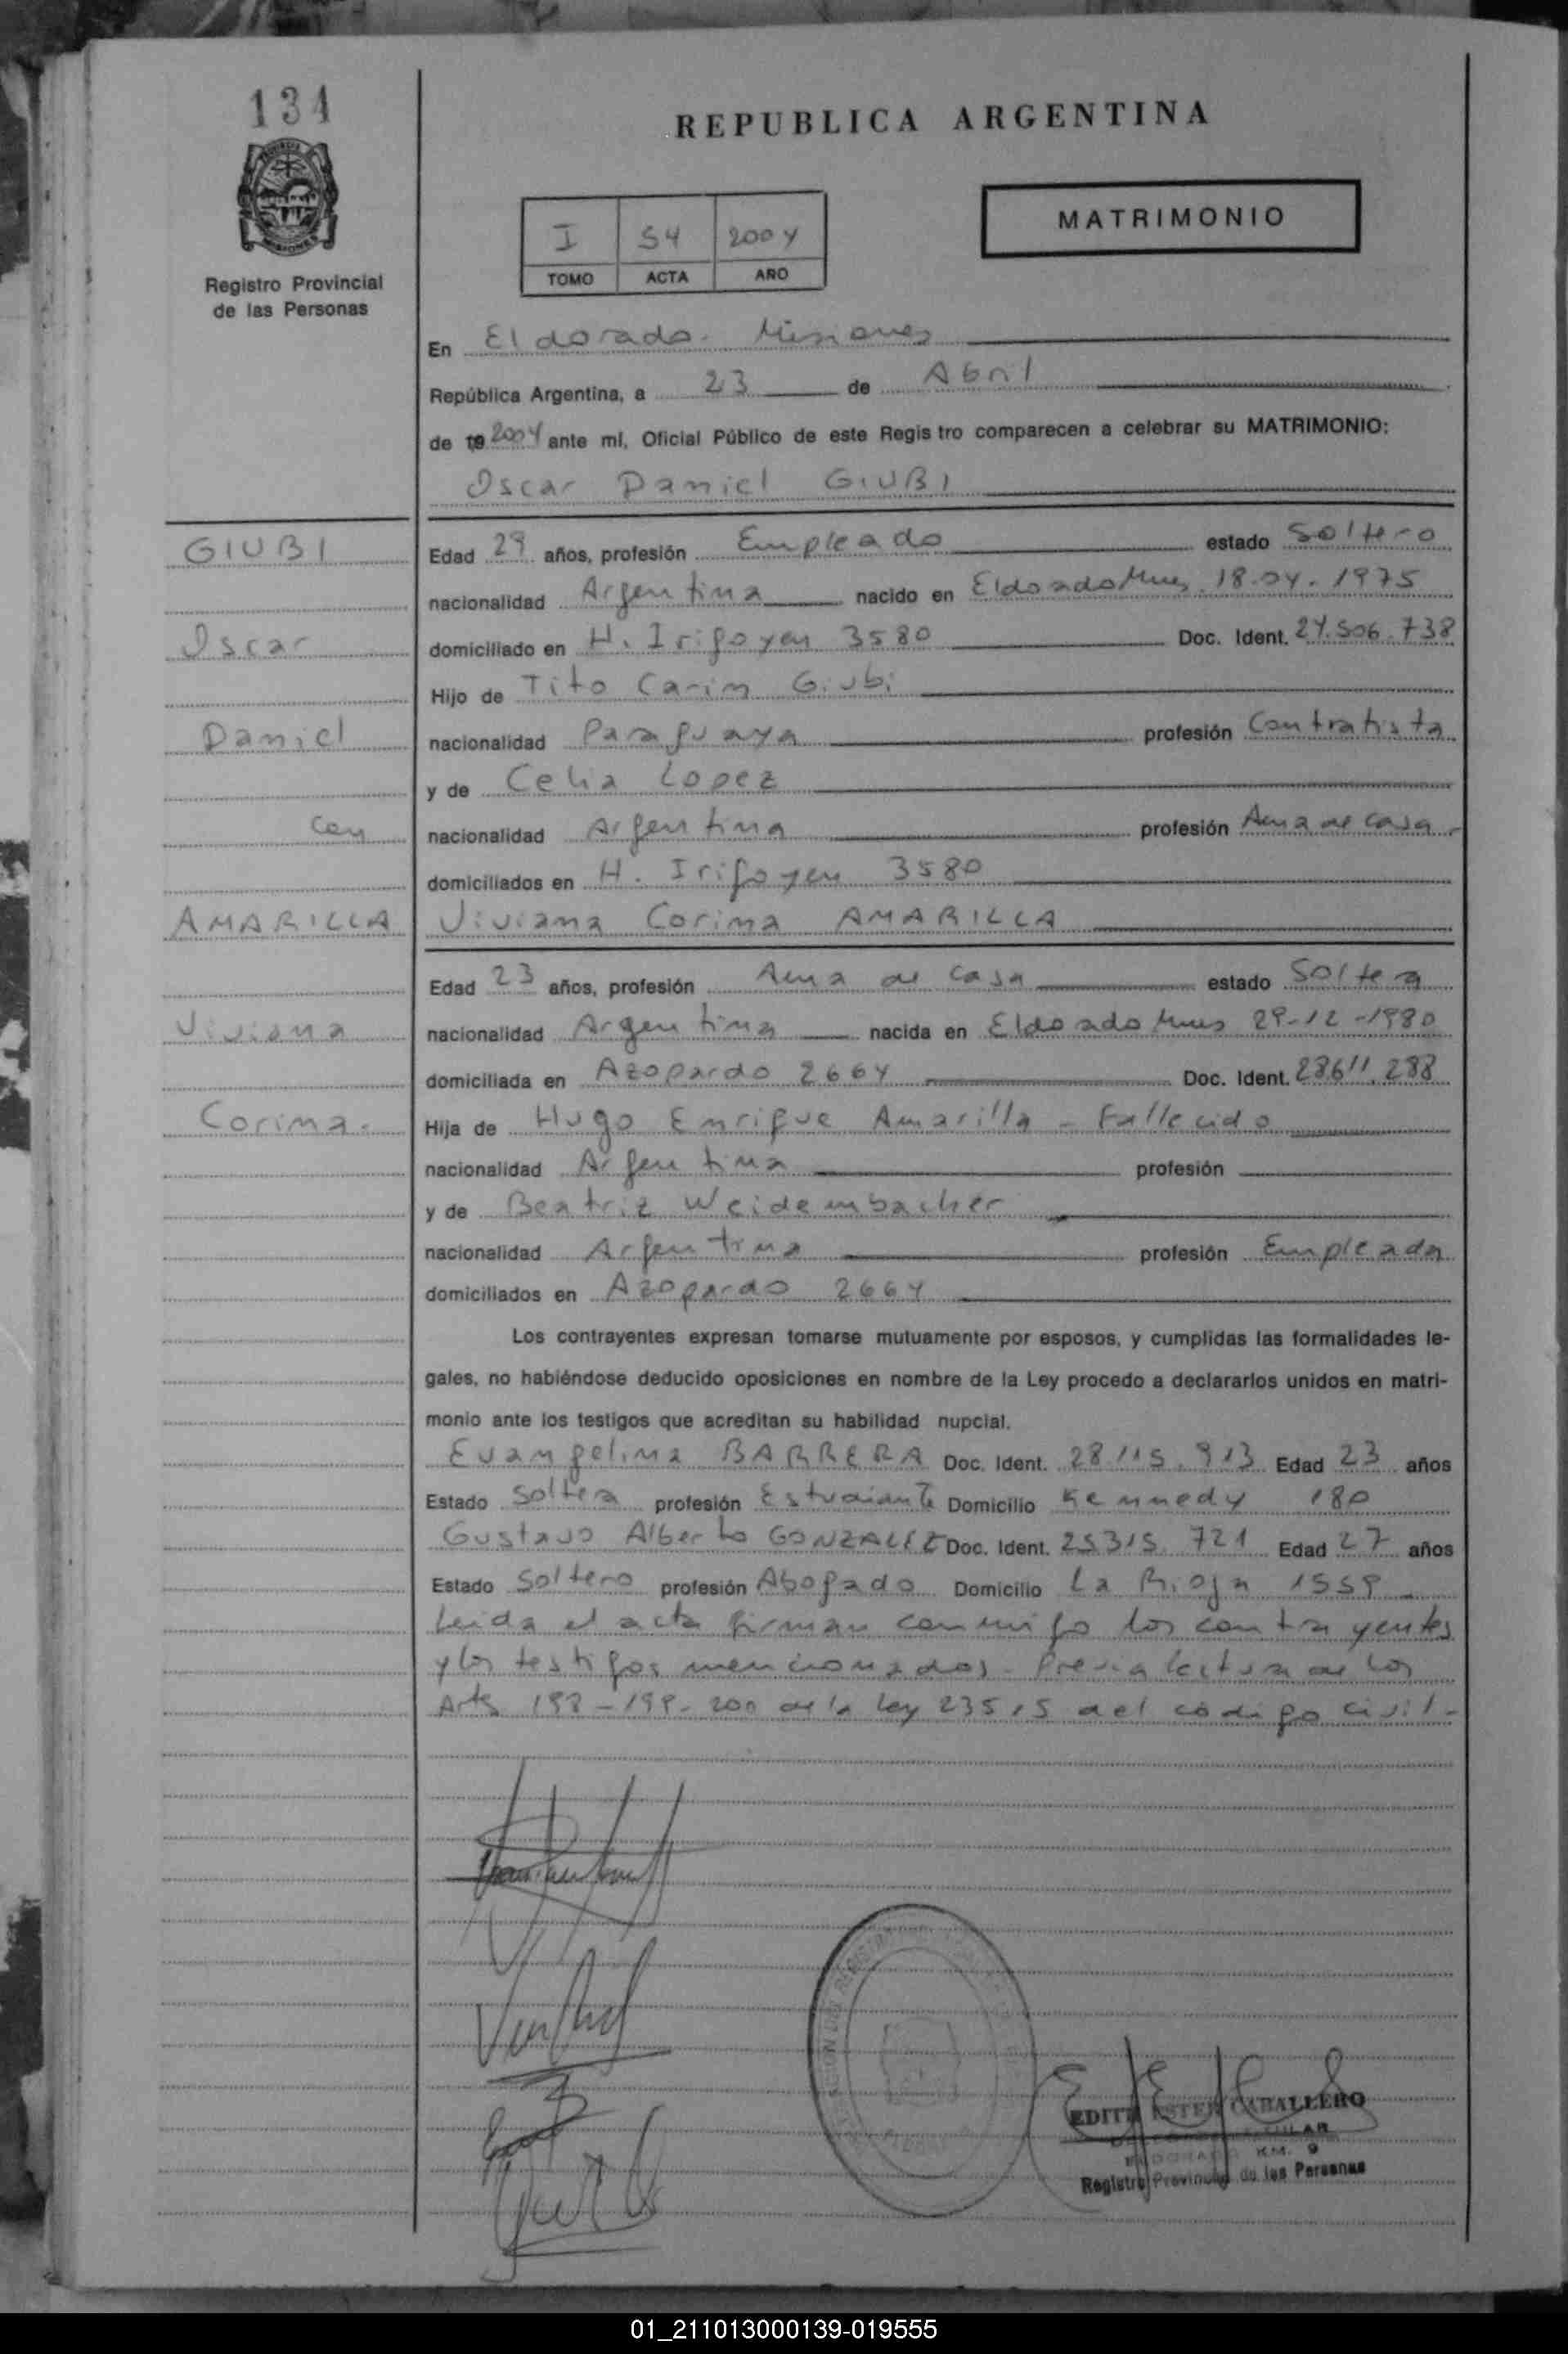 134
REPUBLICA ARGENTINA
MATRIMONIO
I 54 2004
TOMO ACTA AÑO
Registro Provincial
de las Personas
En Eldorado. Misiones
República Argentina, a 23 de Abril
de 19 2004 ante mí, Oficial Público de este Registro comparecen a celebrar su MATRIMONIO:
Oscar Daniel GIUBI
GIUBI
Edad 29 años, profesión Empleado estado Soltero
nacionalidad Argentina nacido en Eldorado Mnes. 18.04.1975
Oscar
domiciliado en H. Irigoyen 3580 Doc. Ident. 24.506.738
Hijo de Tito Carim Giubi
Daniel
nacionalidad Paraguaya profesión Contratista
y de Celia Lopez
Con
nacionalidad Argentina profesión Ama de casa.
domiciliados en H. Irigoyen 3580
AMARILLA
Viviana Corina AMARILLA
Edad 23 años, profesión Ama de casa estado Soltera
Viviana
nacionalidad Argentina nacida en Eldorado Mnes 29-12-1980
domiciliada en Azopardo 2664 Doc. Ident. 28611.288
Corina.
Hija de Hugo Enrique Amarilla - Fallecido
nacionalidad Argentina profesión
y de Beatriz Weidembacher
nacionalidad Argentina profesión Empleada
domiciliados en Azopardo 2664
Los contrayentes expresan tomarse mutuamente por esposos, y cumplidas las formalidades le-
gales, no habiéndose deducido oposiciones en nombre de la Ley procedo a declararlos unidos en matri-
monio ante los testigos que acreditan su habilidad nupcial.
Evangelina BARRERA Doc. Ident. 28.115.913 Edad 23 años
Estado Soltera profesión Estudiante Domicilio Kennedy 180
Gustavo Alberto GONZALEZ Doc. Ident. 25315.721 Edad 27 años
Estado Soltero profesión Abogado Domicilio La Rioja 1559
Leida el acta firman conmigo los contrayentes
y los testigos mencionados - Previa lectura de los
Arts 198-199-200 de la ley 23515 del código civil-
EDITH ESTER CABALLERO
KM. 9
Registro Provincial de las Personas
01_211013000139-019555